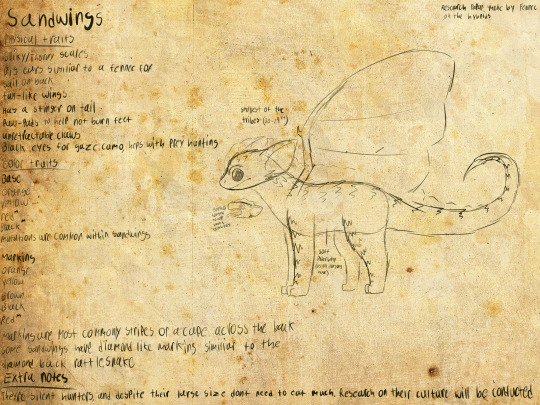 Sandwings
Research notes made by Fennec
of the hybrids
Physical traits
Spiky/thorny scales
Big ears similiar to a fennec fox
Sail on back
Fan-like wings
Has a stinger on tail
Paw-Pads to help not burn feet
unretractable claws
Black eyes for gaze camo, helps with prey hunting
smallest of the
tribes
Color traits
Base
orange
yellow
red
Black
mutations are common within sandwings
Markings
orange
yellow
brown
Black
Red
Markings are most commonly stripes or a cape across the back
some sandwings have diamond like marking similar to the
diamond back rattlesnake
Extra notes
There silent hunters, and despite their large size dont need to eat much. Research on their culture will be conducted